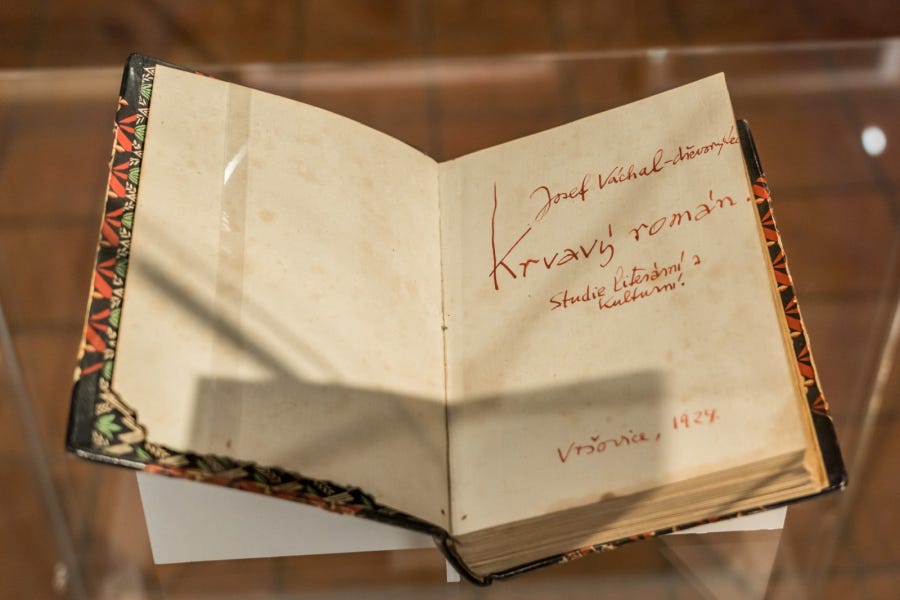 Josef Váchal-dřevorytec
Krvavý román.
Studie literární a
kulturní.
Vršovice, 1924.